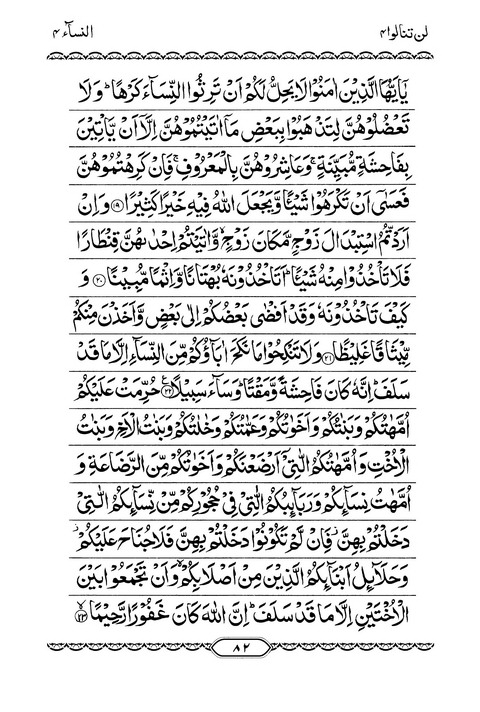 لن تنالوا ٤ النسآء ٤
يٰٓاَيُّهَا الَّذِيْنَ اٰمَنُوْا لَا يَحِلُّ لَكُمْ اَنْ تَرِثُوا النِّسَآءَ كَرْهًا ؕ وَلَا
تَعْضُلُوْهُنَّ لِتَذْهَبُوْا بِبَعْضِ مَاۤ اٰتَيْتُمُوْهُنَّ اِلَّاۤ اَنْ يَّاْتِيْنَ
بِفَاحِشَةٍ مُّبَيِّنَةٍ ۚ وَعَاشِرُوْهُنَّ بِالْمَعْرُوْفِ ۚ فَاِنْ كَرِهْتُمُوْهُنَّ
فَعَسٰۤى اَنْ تَكْرَهُوْا شَيْـًٔا وَّيَجْعَلَ اللّٰهُ فِيْهِ خَيْرًا كَثِيْرًا ﴿۱۹﴾ وَاِنْ
اَرَدْتُّمُ اسْتِبْدَالَ زَوْجٍ مَّكَانَ زَوْجٍ ۙ وَّاٰتَيْتُمْ اِحْدٰىهُنَّ قِنْطَارًا
فَلَا تَاْخُذُوْا مِنْهُ شَيْـًٔا ؕ اَتَاْخُذُوْنَهٗ بُهْتَانًا وَّاِثْمًا مُّبِيْنًا ﴿۲۰﴾ وَ
كَيْفَ تَاْخُذُوْنَهٗ وَقَدْ اَفْضٰى بَعْضُكُمْ اِلٰى بَعْضٍ وَّاَخَذْنَ مِنْكُمْ
مِّيْثَاقًا غَلِيْظًا ﴿۲۱﴾ وَلَا تَنْكِحُوْا مَا نَكَحَ اٰبَآؤُكُمْ مِّنَ النِّسَآءِ اِلَّا مَا قَدْ
سَلَفَ ؕ اِنَّهٗ كَانَ فَاحِشَةً وَّمَقْتًا ؕ وَسَآءَ سَبِيْلًا ﴿۲۲﴾ حُرِّمَتْ عَلَيْكُمْ
اُمَّهٰتُكُمْ وَبَنٰتُكُمْ وَاَخَوٰتُكُمْ وَعَمّٰتُكُمْ وَخٰلٰتُكُمْ وَبَنٰتُ الْاَخِ وَبَنٰتُ
الْاُخْتِ وَاُمَّهٰتُكُمُ الّٰتِيْۤ اَرْضَعْنَكُمْ وَاَخَوٰتُكُمْ مِّنَ الرَّضَاعَةِ وَ
اُمَّهٰتُ نِسَآئِكُمْ وَرَبَآئِبُكُمُ الّٰتِيْ فِيْ حُجُوْرِكُمْ مِّنْ نِّسَآئِكُمُ الّٰتِيْ
دَخَلْتُمْ بِهِنَّ ؗ فَاِنْ لَّمْ تَكُوْنُوْا دَخَلْتُمْ بِهِنَّ فَلَا جُنَاحَ عَلَيْكُمْ ؗ
وَحَلَآئِلُ اَبْنَآئِكُمُ الَّذِيْنَ مِنْ اَصْلَابِكُمْ ۙ وَاَنْ تَجْمَعُوْا بَيْنَ
الْاُخْتَيْنِ اِلَّا مَا قَدْ سَلَفَ ؕ اِنَّ اللّٰهَ كَانَ غَفُوْرًا رَّحِيْمًا ﴿۲۳﴾
۸۲